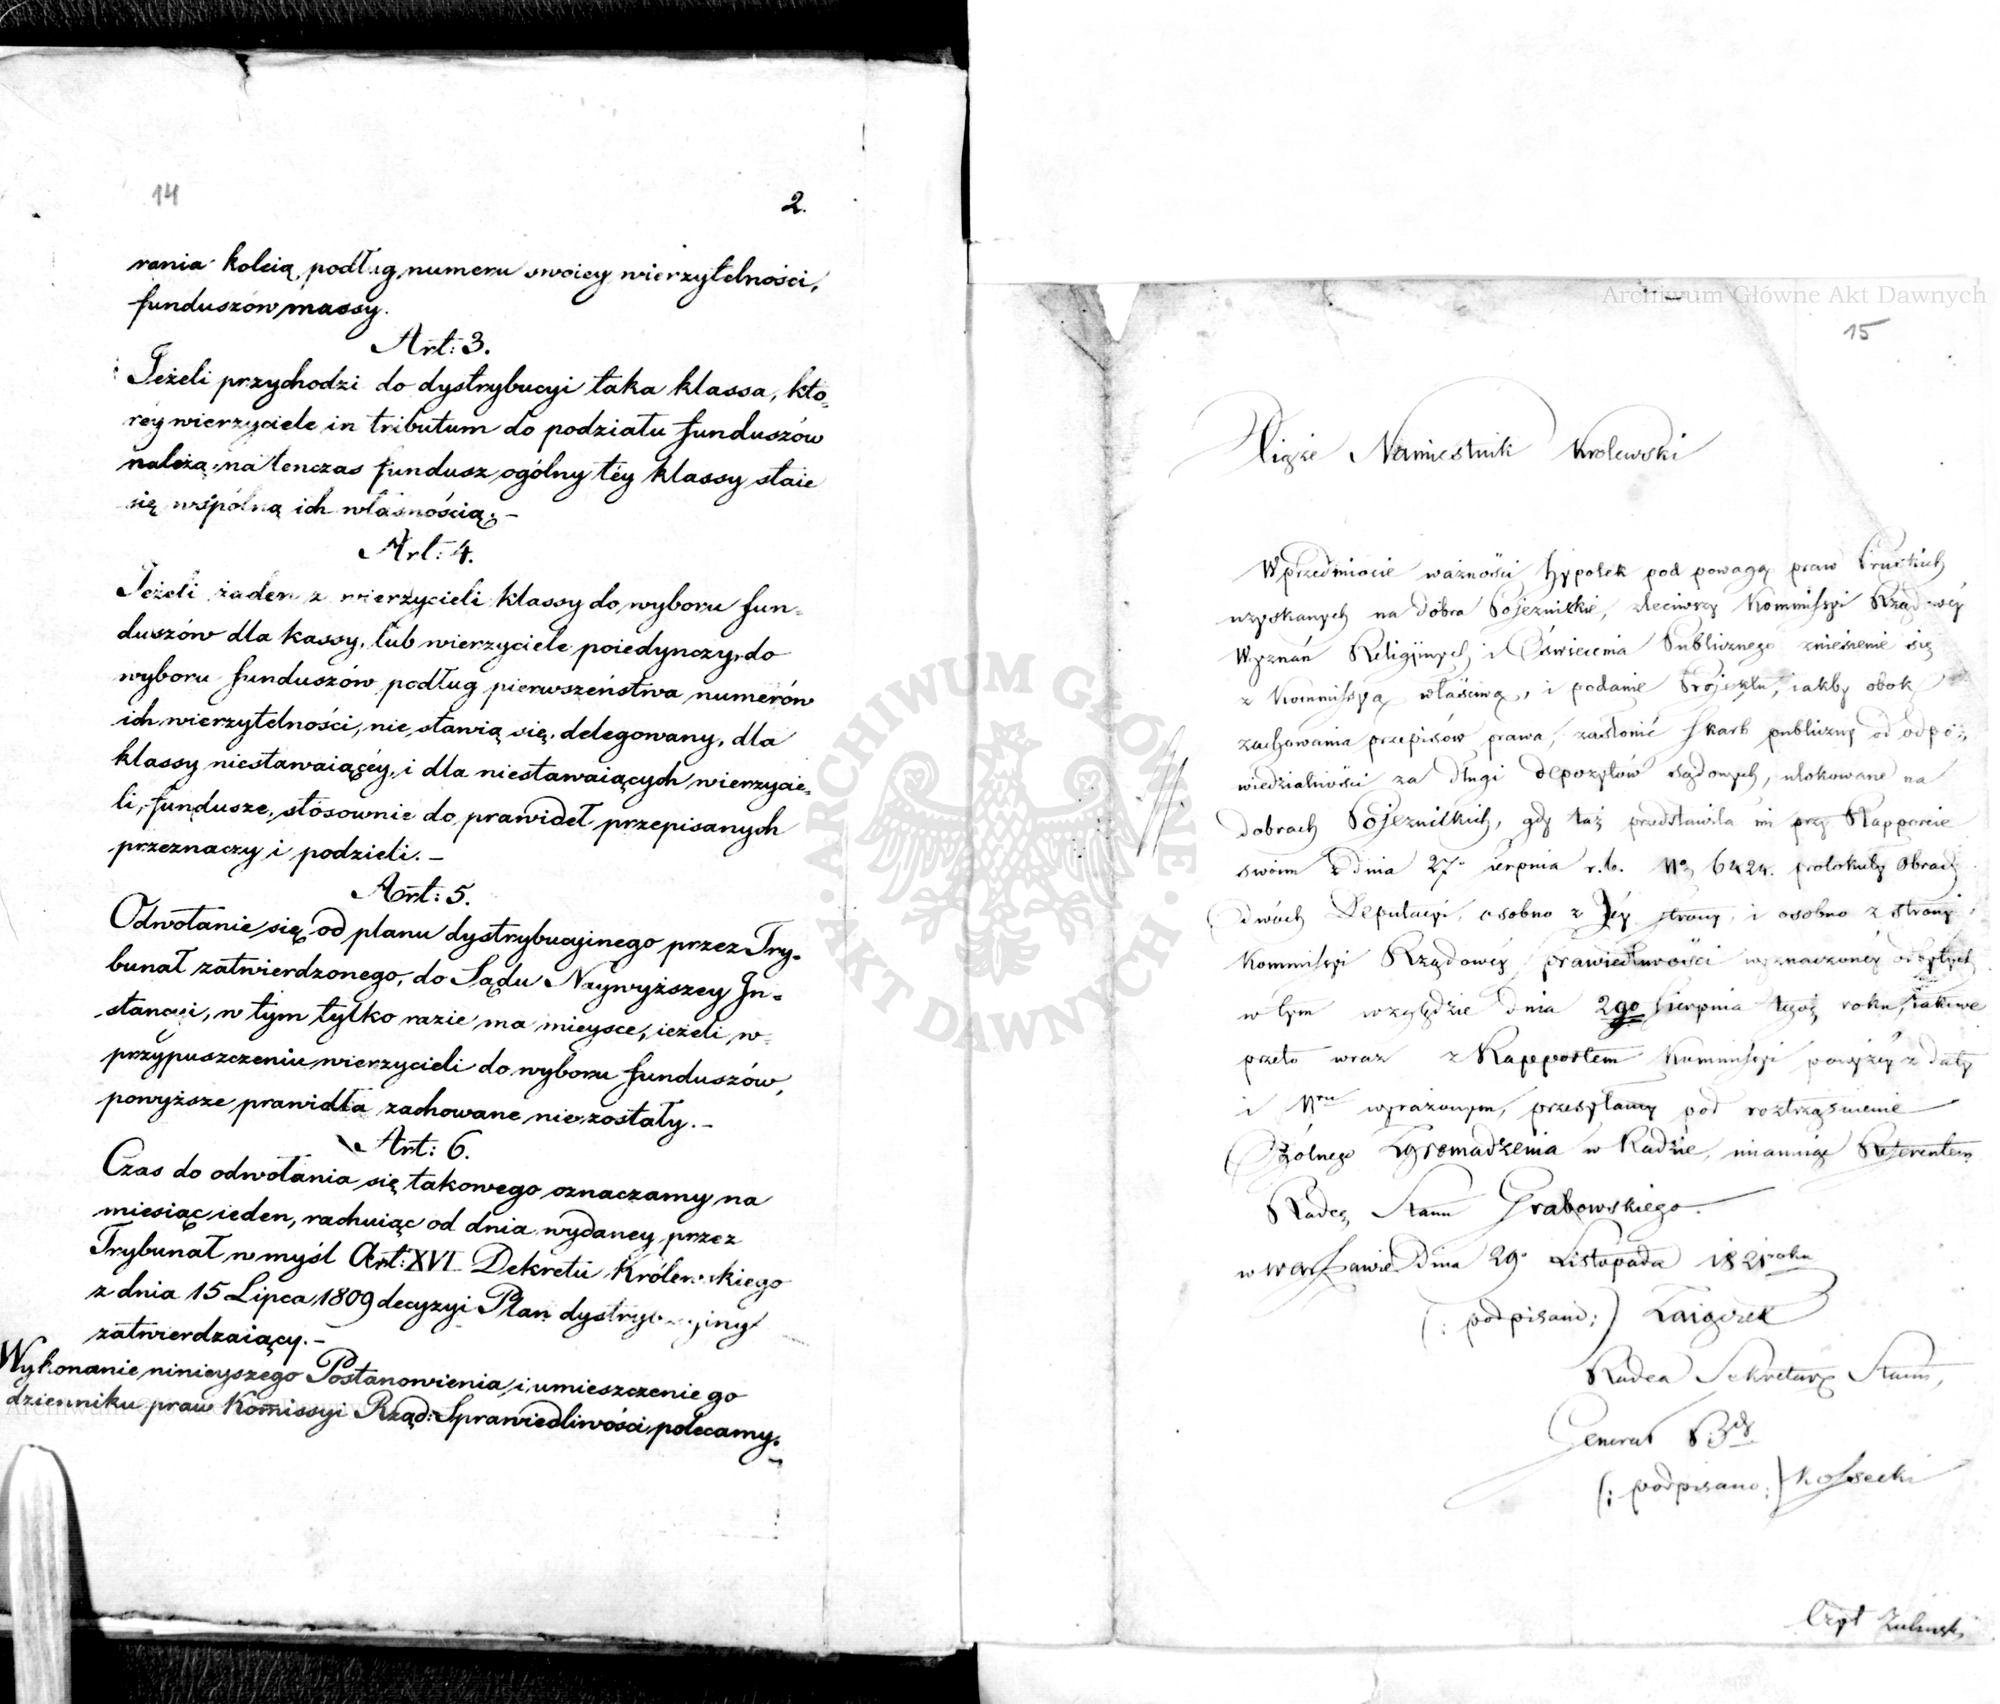 14
2.
rania koleią, podług numeru swoiey wierzytelności,
funduszów massy.
Art: 3.
Jeżeli przychodzi do dystrybucyi taka klassa, któ-
réy wierzyciele in tributum do podziału funduszów
należą, na tenczas fundusz ogólny téy klassy staie
się wspólną ich własnością. —
Art: 4.
Jeżeli żaden z wierzycieli klassy do wyboru fun-
duszów dla kassy, lub wierzyciele poiedynczy, do
wyboru funduszów podług pierwszeństwa numerów
ich wierzytelności, nie stawią się, delegowany, dla
klassy niestawaiącéy, i dla niestawaiących wierzycie-
li, fundusze, stósownie do prawideł przepisanych
przeznaczy i podzieli. —
Art: 5.
Odwołanie się od planu dystrybucyinego przez Try-
bunał zatwierdzonego, do Sądu Naywyższey In-
stancyi, w tym tylko razie ma mieysce, ieżeli w
przypuszczeniu wierzycieli do wyboru funduszów,
powyższe prawidła zachowane nie zostały. —
Art: 6.
Czas do odwołania się takowego oznaczamy na
miesiąc ieden, rachuiąc od dnia wydaney przez
Trybunał w myśl Art: XVI Dekretu Królewskiego
z dnia 15 Lipca 1809 decyzyi Plan dystrybucyjny
zatwierdzaiący. —
Wykonanie ninieyszego Postanowienia, i umieszczenie go
dzienniku praw Komissyi Rząd: Sprawiedliwości polecamy.
Archiwum Główne Akt Dawnych
ARCHIWUM GŁÓWNE
AKT DAWNYCH
Archiwum Główne Akt Dawnych
15
Xiąże Namiestnik Krolewski
W przedmiocie ważności hypotek pod powagą praw Pruskich
uzyskanych na dobra Pojezuickie, zleciwszy Kommissyi Rządowéy
Wyznań Religijnych i Oświecenia Publicznego zniesienie się
z Kommissyą właściwą, i podanie Projektu, iakby obok
zachowania przepisów prawa, zasłonić skarb publiczny od odpo-
wiedzialności za długi depozytów sądowych, ulokowane na
dobrach Pojezuickich, gdy taż przedstawiła mi przy Rapporcie
swoim z dnia 27. sierpnia r.b. No 6424. protokuły Obrad
dwóch Deputacyi, osobno z Jéy strony, i osobno z strony
Kommissyi Rządowéy Sprawiedliwości wyznaczonéy odbytych
w tym względzie dnia 2go Sierpnia tegoż roku, takowe
przeto wraz z Rapportem Kommissyi powyżéy z daty
i Nru wyrażonym, przesyłamy pod roztrząśnienie
Ogólnego Zgromadzenia w Radzie, mianuiąc Referentem
Radcę Stanu Grabowskiego.
w Warszawie dnia 29. Listopada 1821 roku
(: podpisano :) Zaiączek
Radca Sekretarz Stanu,
Generał Bdy
(: podpisano :) Kossecki